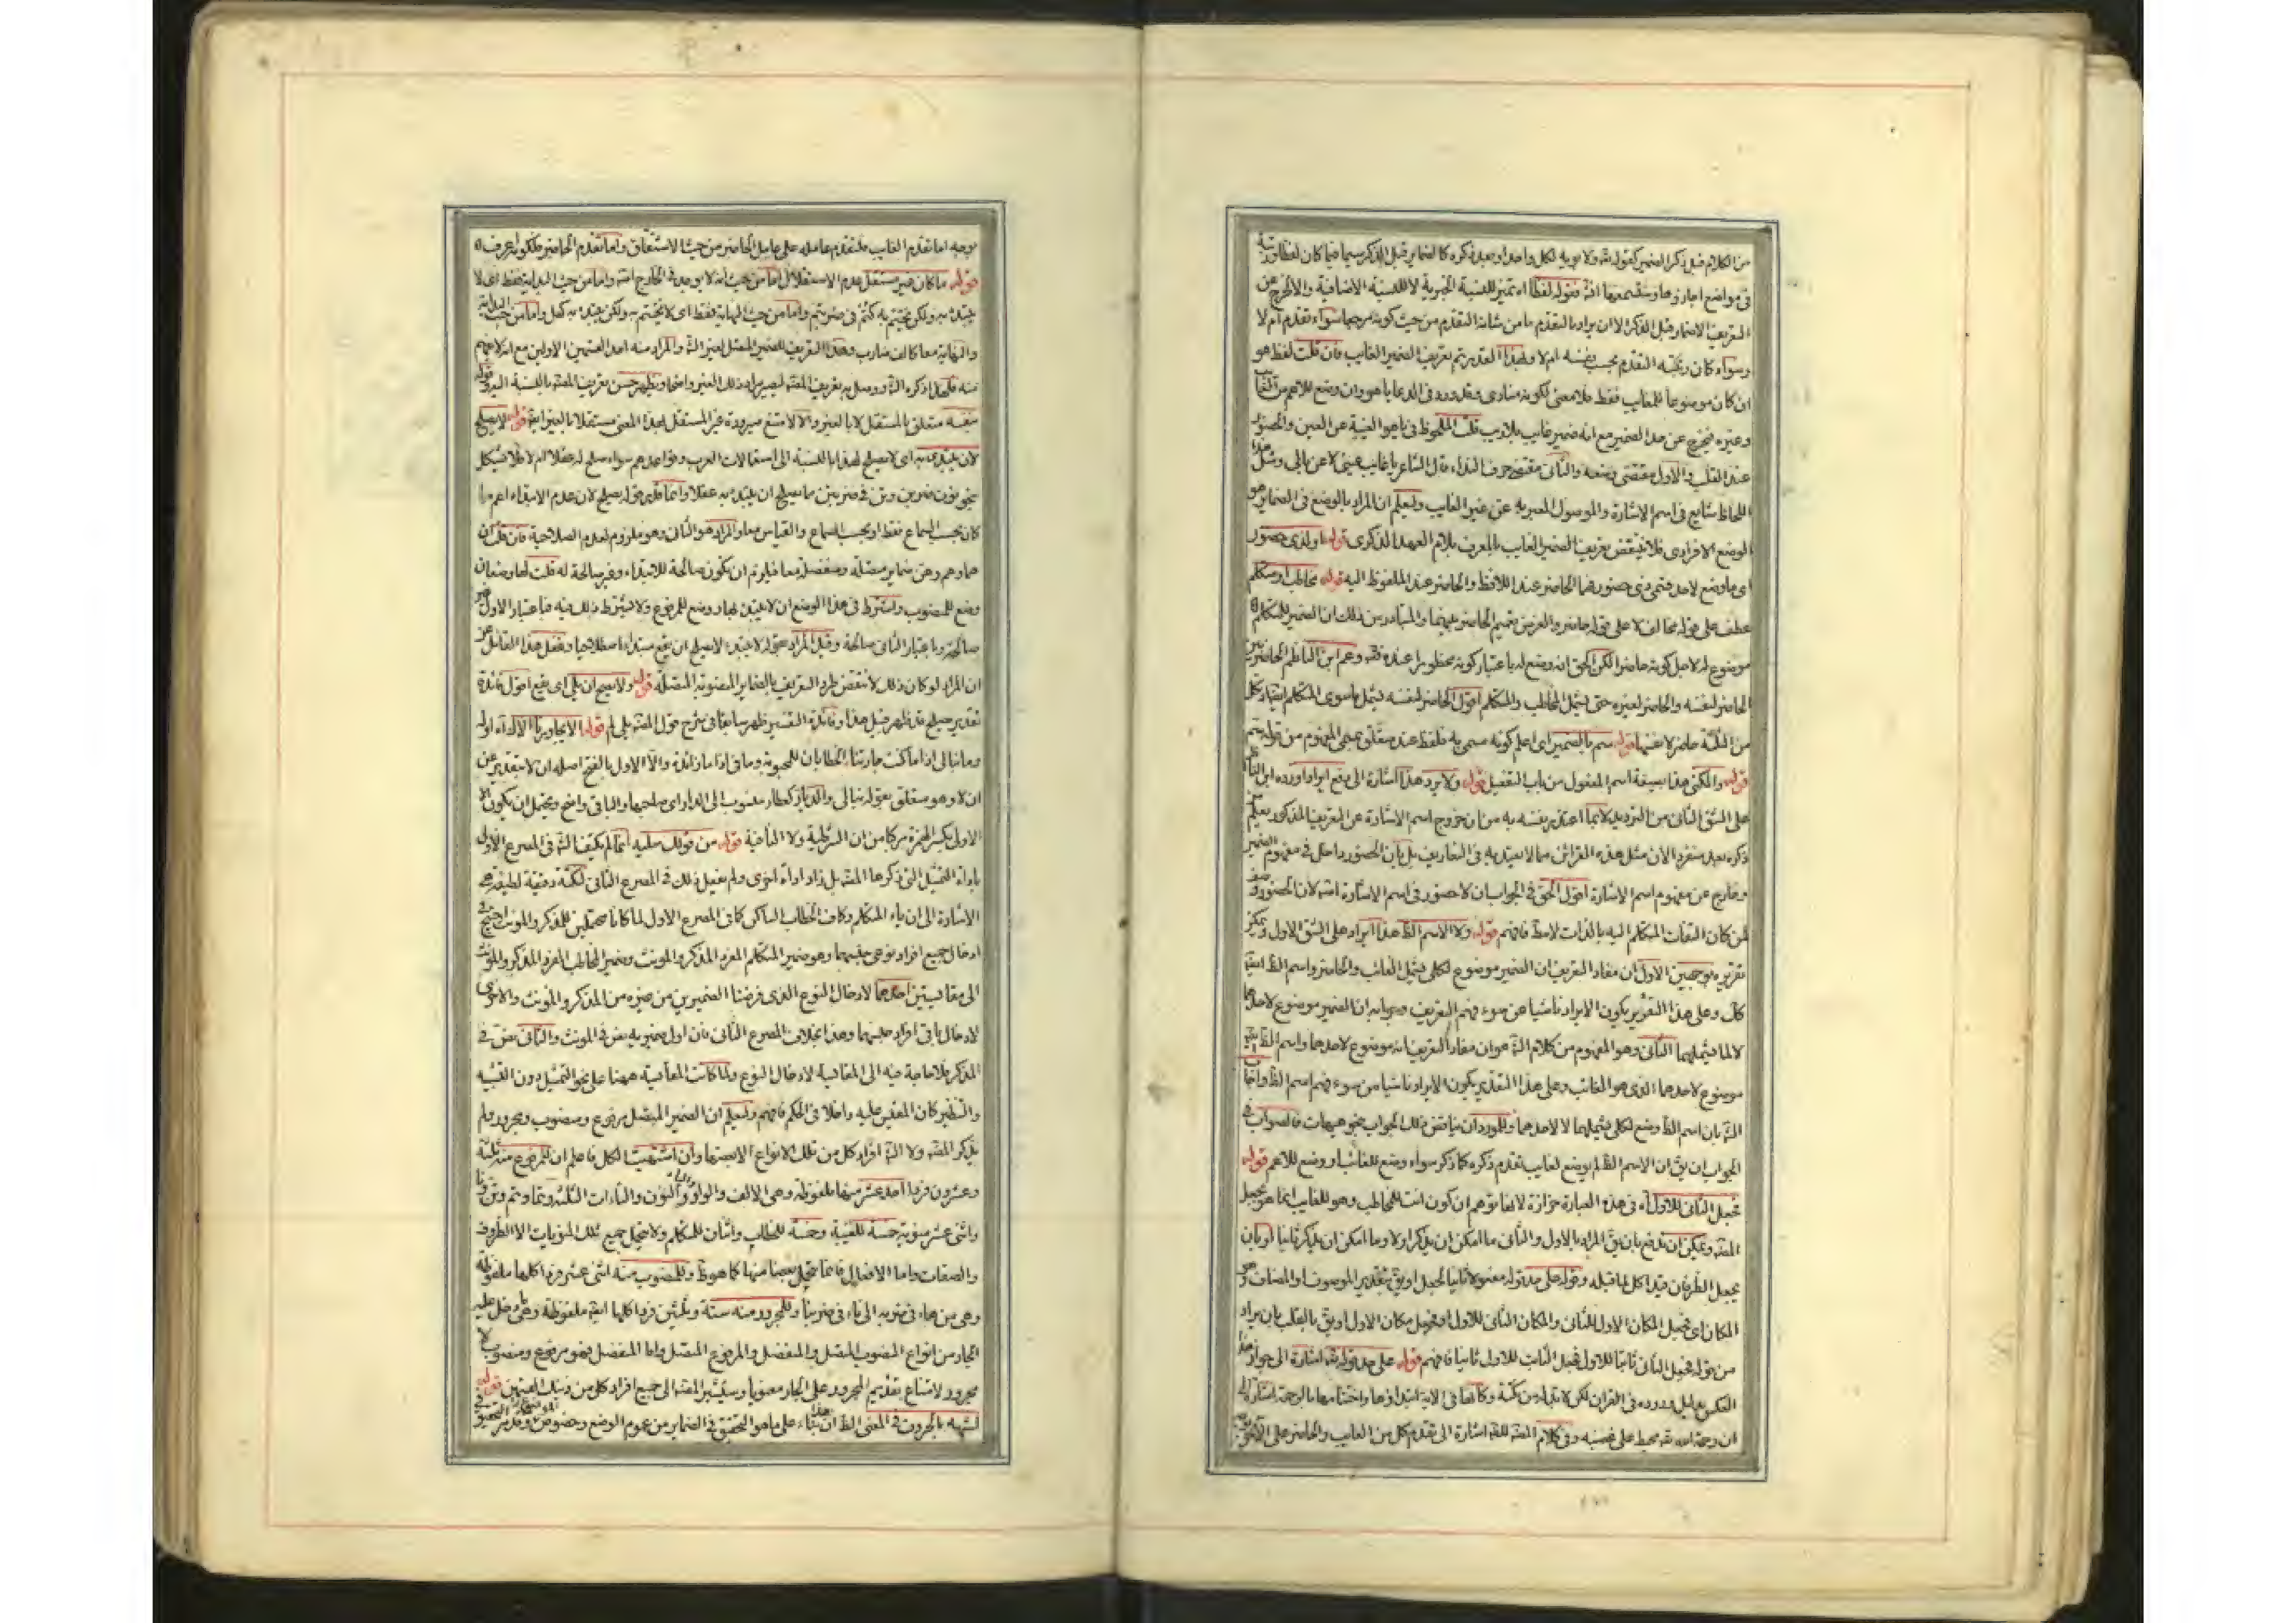 من الكلام قبل ذكر الضمير كقوله تعه ولابويه لكل واحد او بعد ذكره كالضمائر قبل الذكر سيما فيما كان لفظا ورتبة
فى مواضع اجازوها وسند معها انه فقوله لفظا اه تميز للنسبة الخبرية لا للنسبة الاضافية والا لخرج عن
التعريف الاضمار قبل الذكر الا ان يراد بالتقدم ما من شانه التقدم من حيث كونه مرجعا سواء تقدم ام لا
وسواء كان رتبته التقدم بحسب نفسه ام لا وبهذا التقدير تم تعريف الضمير الغايب فان قلت لفظ هو
ان كان موضوعا للغايب فقط فلا معنى لكونه منادى وقد ورد فى الدعا يا هو وان وضع للاعم من الغايب
وغيره فيخرج عن حد الضمير مع انه ضمير غايب بلا ريب قلت الملحوظ فى يا هو الغيبة عن العين والحضور
عند القلب والاول مقتضى وضعه والثانى مقتضى حرف النداء قال الشاعر يا غايب عينى لا عن بالى ومثل هذا
اللحاظ شايع فى اسم الاشارة والموصول المعبر به عن غير الغايب وليعلم ان المراد بالوضع فى الضماير هو
الوضع الافرادى فلا ينتقض تعريف الضمير الغايب بالمعرف بلام العهد الذكرى قوله ولذى حضور
اى ما وضع لاحد قسمى ذى حضور هما الحاضر عند اللافظ والحاضر عند الملفوظ اليه قوله مخاطب او متكلم
عطف على قوله لا على قوله حاضر والغرض تعميم الحاضر عليهما والمتبادر من ذلك ان الضمير للمتكلم
موضوع له لاجل كونه حاضرا لكن الحق انه وضع له باعتبار كونه محظورا عنده وعم ابن الناظم الحاضر من
الحاضر لنفسه والحاضر لغيره حتى يشمل المخاطب والمتكلم اقول الحاضر لنفسه يشمل ما سوى المتكلم ايضا اذ كل
من الثلثة حاضر لانفسها قوله سم بالضمير اى اعلم كونه مسمى به فلفظ عند متعلق بعلم المفهوم من قوله سم
قوله والمكنى هذا بصيغة اسم المفعول من باب التفعيل قوله ولا يرد هذا اشارة الى دفع ايراد اورده ابن الناظم
على الشق الثانى من الترديد لا بما اعتذر بنفسه به من ان خروج اسم الاشارة عن التعريف المذكور يعلم من
ذكره بعد منفردا لان مثل هذه القرائن مما لا يعتد به فى التعاريف بل بان الحضور داخل فى مفهوم الضمير
وخارج عن مفهوم اسم الاشارة اقول الحق فى الجواب ان لا حضور فى اسم الاشارة لان الحضور وصف
لمن كان التفات المتكلم اليه بالذات لا مط فافهم قوله ولا الاسم الظ هذا ايراد على الشق الاول ويمكن
تقريره بوجهين الاول ان مفاد التعريف ان الضمير موضوع لكلى يشمل الغائب والحاضر واسم الظ ايضا
كك وعلى هذا التقرير يكون الايراد ناشيا من سوء فهم التعريف وجوابه ان الضمير موضوع لاحدهما
لا لما يشملهما الثانى وهو المفهوم من كلام الشه هو ان مفاد التعريف انه موضوع لاحدهما واسم الظ
موضوع لاحدهما الذى هو الغائب وعلى هذا التقدير يكون الايراد ناشيا من سوء فهم اسم الظ واجاب
الشه بان اسم الظ وضع لكلى يشملهما لا لاحدهما وللمورد ان يناقض ذلك الجواب بنحو هيهات فالصواب فى
الجواب ان يق ان الاسم الظ لم يوضع لغايب تقدم ذكره كما ذكر سواء وضع للغائب او وضع للاعم قوله
فجعل الثانى للاول اه فى هذه العبارة حزازة لايهامها ان كون انت للمخاطب وهو للغايب انما هو بجعل
المصه ويمكن ان يدفع بان يق المراد بالاول والثانى ما امكن ان يذكر اولا وما امكن ان يذكر ثانيا او بان
يجعل الظرفان قيدا كل لما قبله وقوله على حد قوله مفعولا ثانيا لجعل او يق بتقدير الموصوف او المضاف وهو
المكان اى فجعل المكان الاول للثانى والمكان الثانى للاول او فجعل مكان الاول او يق بالقلب بان يراد
من قوله فجعل الثانى ثابتا للاول فجعل الثابت للاول ثانيا فافهم قوله على حد قوله تعه اشارة الى جواز هذا
العكس بدليل وروده فى القران لكن لا بد له من نكتة وكانها فى الاية ابتداؤها واختتامها بالرحمة اشارة الى
ان رحمة الله تعه محيط على غضبه وفى كلام المصه لعله اشارة الى تقدم كل من الغايب والحاضر على الاخر من
وجه اما تقدم الغايب فلتقدم عامله على عامل الحاضر من حيث الاشتقاق واما تقدم الحاضر فلكونه اعرف
قوله ما كان غير مستقل عدم الاستقلال اما من حيث انه لا يوجد فى الخارج واما من حيث البداية فقط اى لا
يبتدء به ولكن يختتم به كتم فى ضربتم واما من حيث النهاية فقط اى لا يختتم به ولكن يبتدء به كهل واما من حيث البداية
والنهاية معا كالف ضارب وهذا التعريف للضمير المتصل لغير الشه والمراد منه احد القسمين الاولين مع انه لا يفهم
منه فلهذا ذكره الشه ووصل به تعريف المصه ليصير المراد بذلك الغير واضحا ويظهر حسن تعريف المصه بالنسبة اليه قوله
بنفسه متعلق بالمستقل لا بالغير والا لامتنع صيرورة غير المستقل بهذا المعنى مستقلا بالغير ايضا قوله لا يصلح
لان يبتدى به اى لا يصلح لهذا بالنسبة الى استعمالات العرب وقواعدهم سواء صلح له عقلا ام لا فلا يشكل
بنحو نون ضربن وتن فى ضربتن مما يصلح ان يبتدء به عقلا وانما قدر قوله يصلح لان عدم الابتداء اعم مما
كان بحسب السماع فقط او بحسب السماع والقياس معا والمراد هو الثانى وهو ملزوم لعدم الصلاحية فان قلت ان
هما وهم وهن ضماير متصلة ومنفصلة معا فيلزم ان يكون صالحة للابتداء وغير صالحة له قلت لها وضعان
وضع للمنصوب واشترط فى هذا الوضع ان لا يبتدء بها ووضع للمرفوع ولا يشترط ذلك فيه فباعتبار الاول غير
صالحة وباعتبار الثانى صالحة وقيل المراد بقوله لا يبتدء لا يصلح ان يقع مبتداء اصطلاحيا وغفل هذا القائل عن
ان المراد لو كان ذلك لانتقض طرد التعريف بالضماير المنصوبة المنفصلة قوله ولا يصح ان يلى اى يقع اقول فائدة
تقدير يصلح قد ظهر قبل هذا وفائدة التفسير ظهر سابقا فى شرح قول المصه يلى لم قوله الا يجاورنا الاك اه اوله
وما نبالى اذا ما كنت جارتنا الخطابان للمحبوبة وما فى اذا ما زائدة والا الاول بالفتح اصله ان لا بتقدير عن
ان لا وهو متعلق بقوله نبالى والديار كعطار منسوب الى الدار اى صاحبها والباقى واضح ويحتمل ان يكون الا
الاولى بكسر الهمزة مركبا من ان الشرطية ولا النافية قوله من قولك سلنيه انما لم يكتف الشه فى المصرع الاول
باداة التمثيل التى ذكرها المصه بل زاد اداة اخرى ولم يفعل ذلك فى المصرع الثانى لنكتة دقيقة لطيفة هى
الاشارة الى ان ياء المتكلم وكاف الخطاب الساكن كما فى المصرع الاول لما كانا محتملين للمذكر والمونث احتيج فى
ادخال جميع افراد نوعى جنسهما وهو ضمير المتكلم المفرد المذكر والمونث وضمير المخاطب المفرد المذكر والمونث
الى مقايستين احدهما لادخال النوع الذى فرضنا الضميرين من غيره من المذكر والمونث والاخرى
لادخال باقى افراد جنسهما وهذا بخلاف المصرع الثانى فان اول ضميريه نص فى المونث والثانى نص فى
المذكر فلا حاجة فيه الى المقايسة لادخال النوع ولما كانت المقايسة ههنا على نحو التمثيل دون التشبيه
والتنظير كان المقيس عليه داخلا فى الحكم فافهم وليعلم ان الضمير المتصل مرفوع ومنصوب ومجرور ولم
يذكر المصه ولا الشه افراد كل من تلك الانواع الا بعضها وان اشتهيت الكل فاعلم ان للمرفوع منه ثلثة
وعشرون فردا احد عشر منها ملفوظة وهى الالف والواو والياء والنون والتاءات الثلثة وتما وتم وتن ونا
واثنى عشر منوية خمسة للغيبة وخمسة للخطاب واثنان للمتكلم ولا يتحمل جميع تلك المنويات الا الظروف
والصفات واما الافعال فانما يتحمل بعضا منها كما هو ظ وللمنصوب منه اثنى عشر فردا كلها ملفوظة
وهى من هاء فى ضربه الى ناء فى ضربنا وللمجرور منه ستة وثلثين فردا كلها ايضا ملفوظة وهى ما دخل عليه
الجار من انواع المنصوب المتصل والمنفصل والمرفوع المتصل واما المنفصل فهو مرفوع ومنصوب لا
مجرور لامتناع تقديم المجرور على الجار معنويا وسيشير المصه الى جميع افراد كل من ذينك القسمين قوله
لشبهه بالحروف فى المعنى الظ ان هذا بناء على ما هو التحقيق فى الضماير من عموم الوضع وخصوص